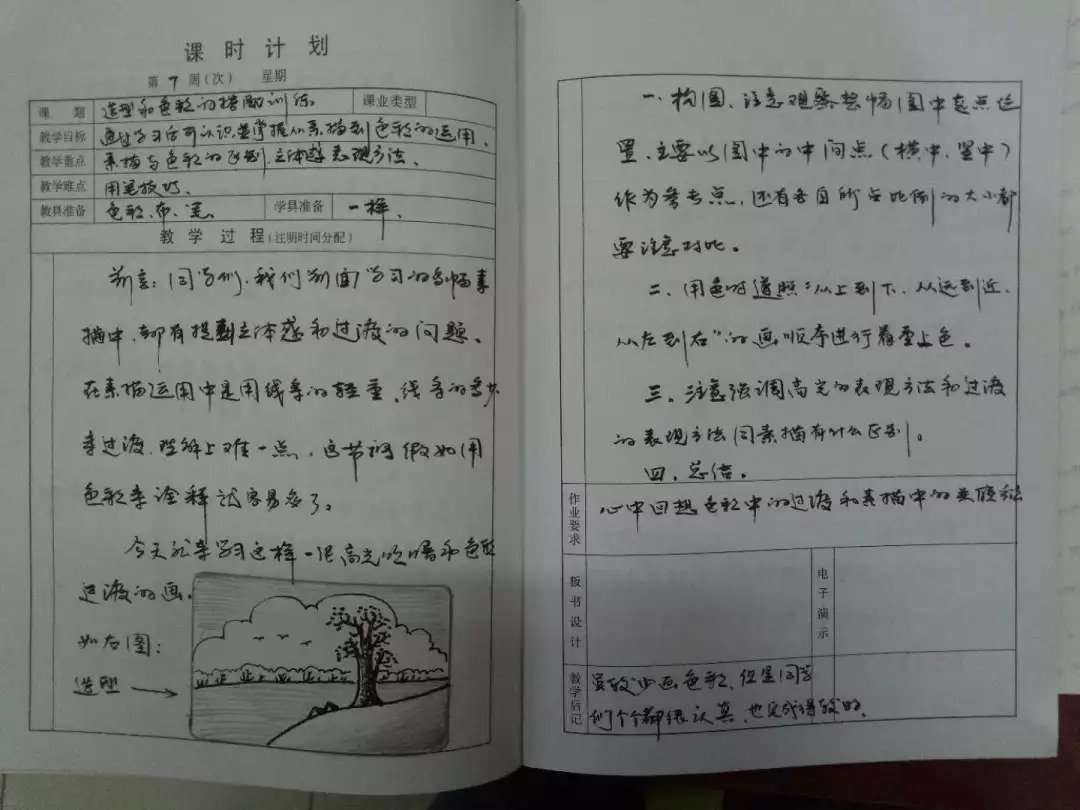 课时计划
第 7 周(次) 星期
课题 造型和色彩的搭配训练 课业类型
教学目标 通过学习后可认识并掌握从素描到色彩的运用、
教学重点 素描与色彩的区别,立体感表现方法。
教学难点 用笔技巧、
教具准备 色彩、布、笔、 学具准备 一样、
教学过程(注明时间分配)
前言:同学们,我们前面学习的多幅素
描中,都有提到立体感和过渡的问题。
在素描运用中是用线条的轻重、线条的多少
来过渡,理解上难一点,这节课假如用
色彩来诠释就容易多了。
今天就来学习这样一张高光明暗和色彩
过渡的画。
如右图:
造型
一、构图、注意观察整幅图中起点位
置,主要以图中的中间点(横中、竖中)
作为参考点,还有各自所占比例的大小都
要注意对比。
二、用色时遵照“从上到下、从远到近、
从左到右”的画顺序进行着重上色。
三、注意强调高光的表现方法和过渡
的表现方法同素描有什么区别。
四、总结。
作业要求 心中回想色彩中的过渡和素描中的
板书设计
电子演示
教学后记 虽较少画色彩,但是同学
们个个都很认真,也完成得较好。